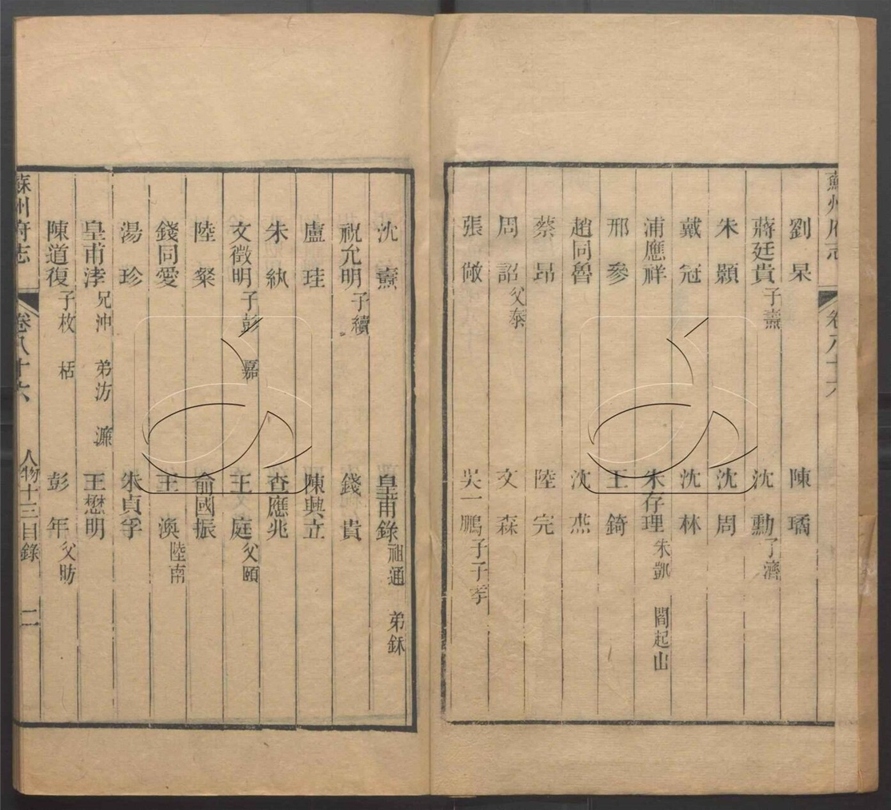 蘇州府志 卷八十六
劉杲 陳璚
蔣廷貴 子燾 沈勳 子濟
朱顥 沈周
戴冠 沈林
浦應祥 朱存理 朱凱 閻起山
邢參 王錡
趙同魯 沈杰
蔡昂 陸完
周詔 父泰 文森
張儆 吳一鵬 子子孝
沈燾 皇甫錄 祖通 弟𨥤
祝允明 子續 錢貴
盧珪 陳輿立
朱紈 查應兆
文徵明 子彭 嘉 王庭 父頤
陸粲 俞國振
錢同愛 王渙 陸南
湯珍 朱貞孚
皇甫涍 兄沖 弟汸 濂 王懋明
陳道復 子枚 栝 彭年 父昉
蘇州府志 卷八十六 人物十三目錄 二